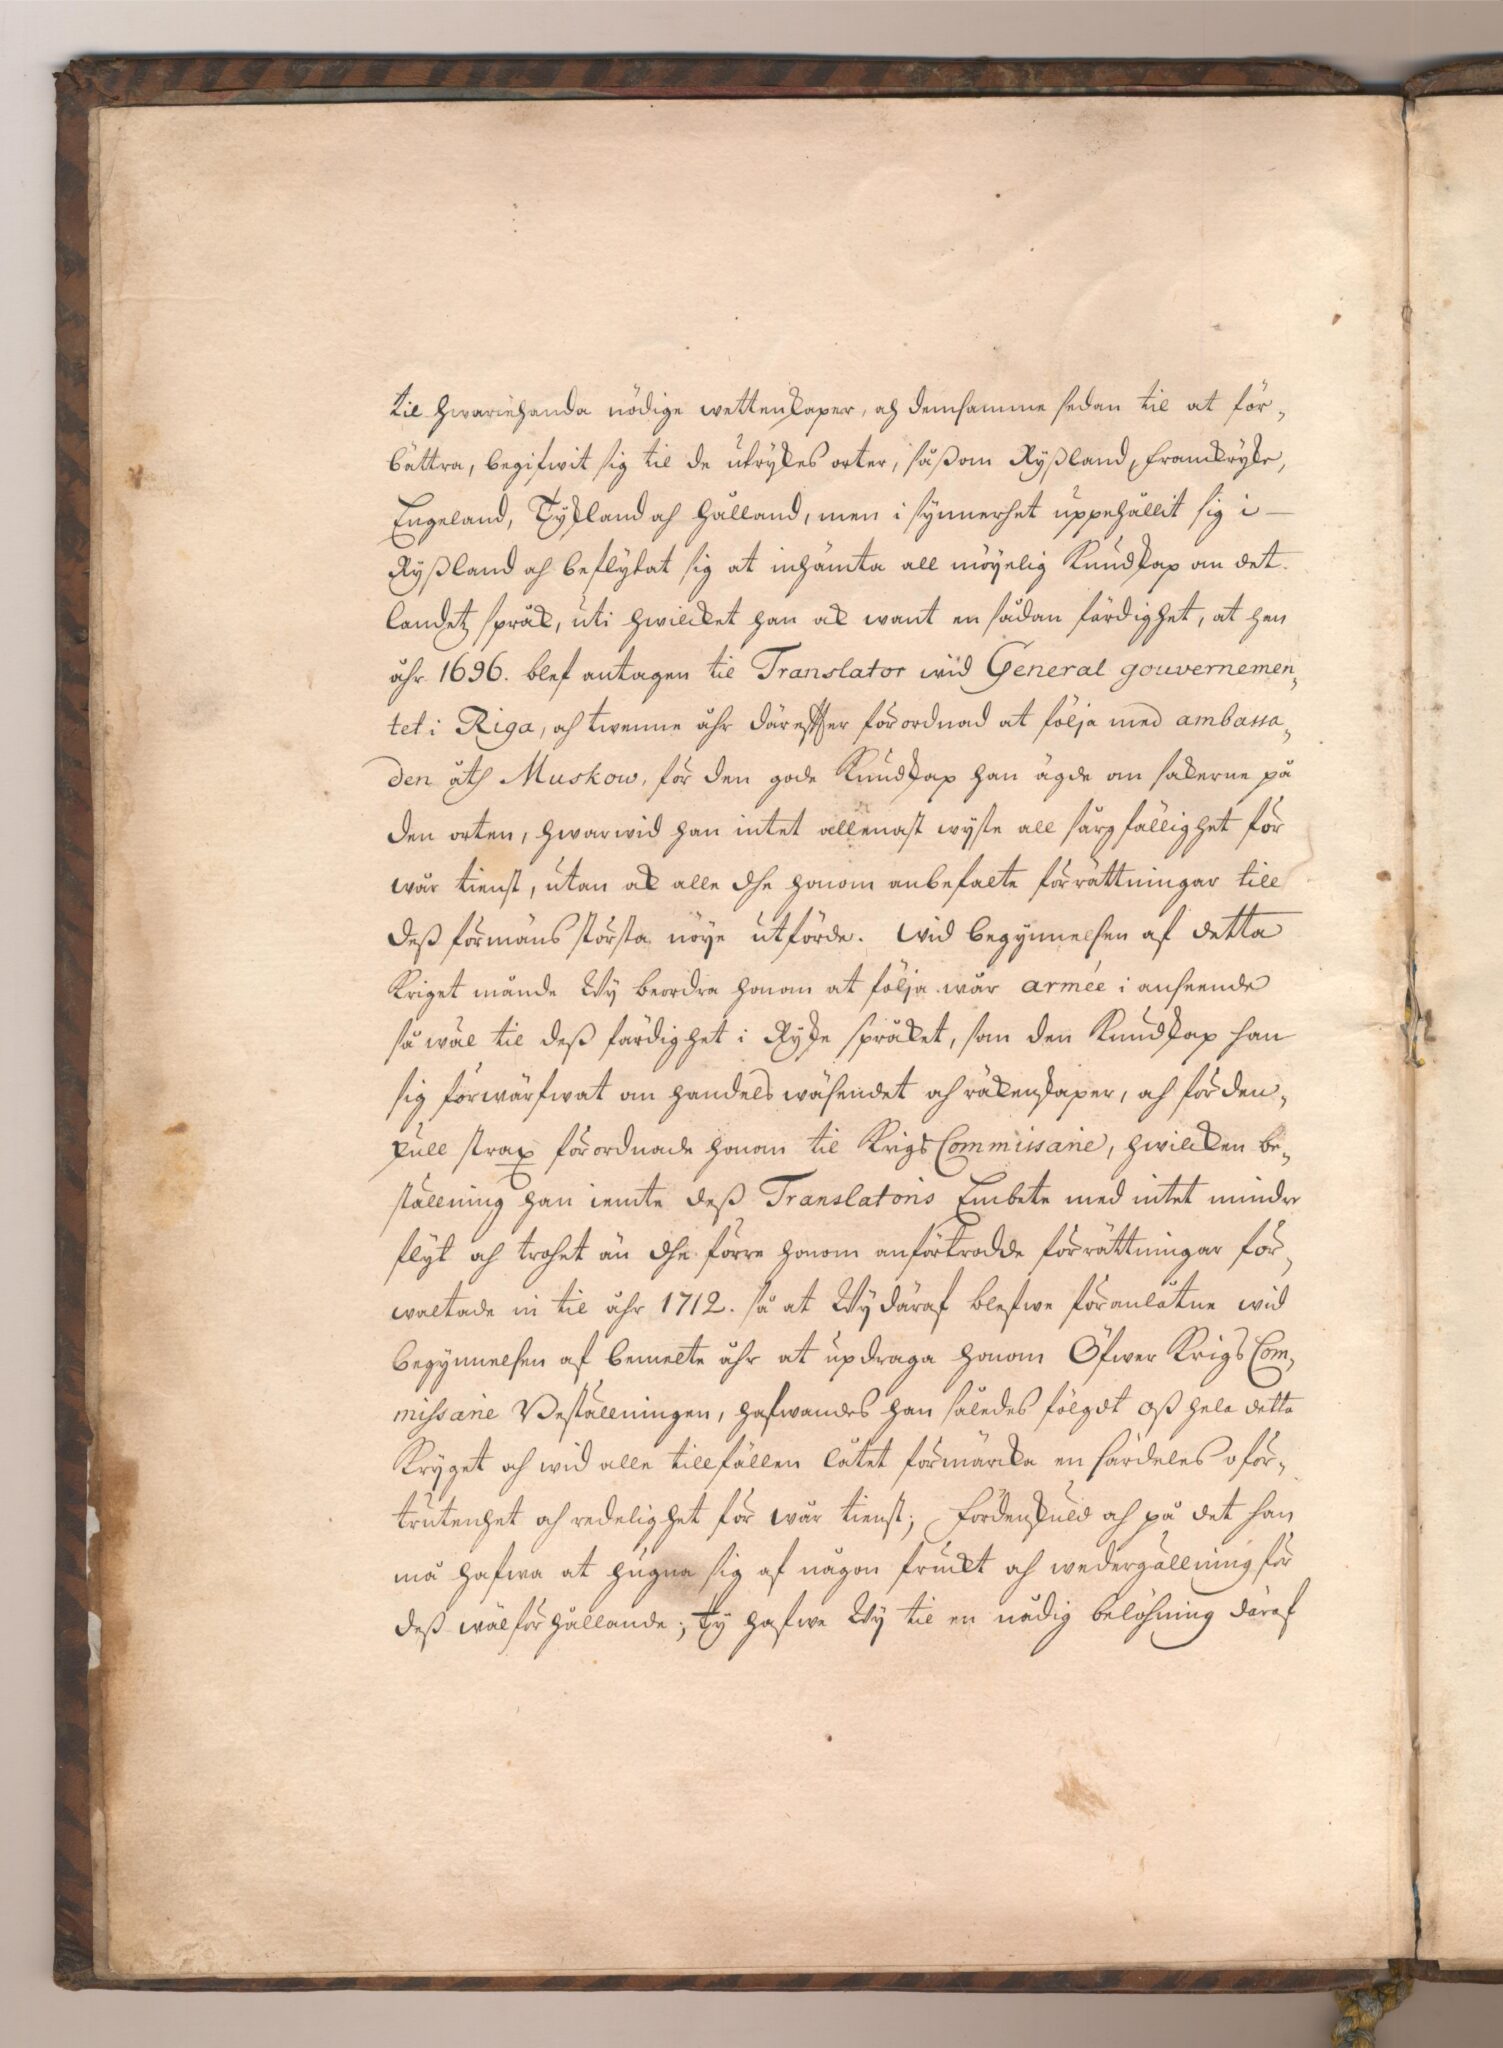 til hwariehanda nödige wettenskaper, och demsamme sedan til at för-
bättra, begifwit sig til de utrykes orter, såßom Ryßland, Franckryke,
Engeland, Tyskland och Hålland, men i synnerhet uppehållit sig i
Ryßland och beflytat sig at inhämta all möyelig Kundskap om det
landetz språk, uti hwilcket han ok want en sådan färdighet, at han
åhr 1696. blef antagen til Translator wid General gouvernemen-
tet i Riga, och twenne åhr därefter förordnad at följa med ambassa-
den åth Muskow, för den gode Kundskap han ägde om sakerne på
den orten, hwarwid han intet allenast wyste all sårgfällighet för
wår tienst, utan ok alle dhe honom anbefalte förrättningar till
deß förmäns största nöye utförde. Wid begynnelsen af detta
Kriget månde Wy beordra honom at följa wår armée i anseende
så wäl til deß färdighet i Ryske språket, som den Kundskap han
sig förwärfwat om handels wäsendet och räkenskaper, och för den-
skull strax förordnade honom til Krigs Commissarie, hwilcken be-
ställning han iemte deß Translatoris Embete med intet mindre
flyt och trohet än dhe förre honom anförtrodde förrättningar för-
waltade in til åhr 1712. så at Wy däraf blefwe föranlåtne wid
begynnelsen af bemelte åhr at updraga honom Öfwer Krigs Com-
missarie Beställningen, hafwandes han således fölgdt oß hela detta
Kryget och wid alle tillfällen låtet förmärcka en särdeles oför-
trutenhet och redelighet för wår tienst; Fördenskuld och på det han
må hafwa at hugna sig af någon fruckt och wedergällning för
deß wälförhållande; Ty hafwe Wy til en nådig belöhning däraf